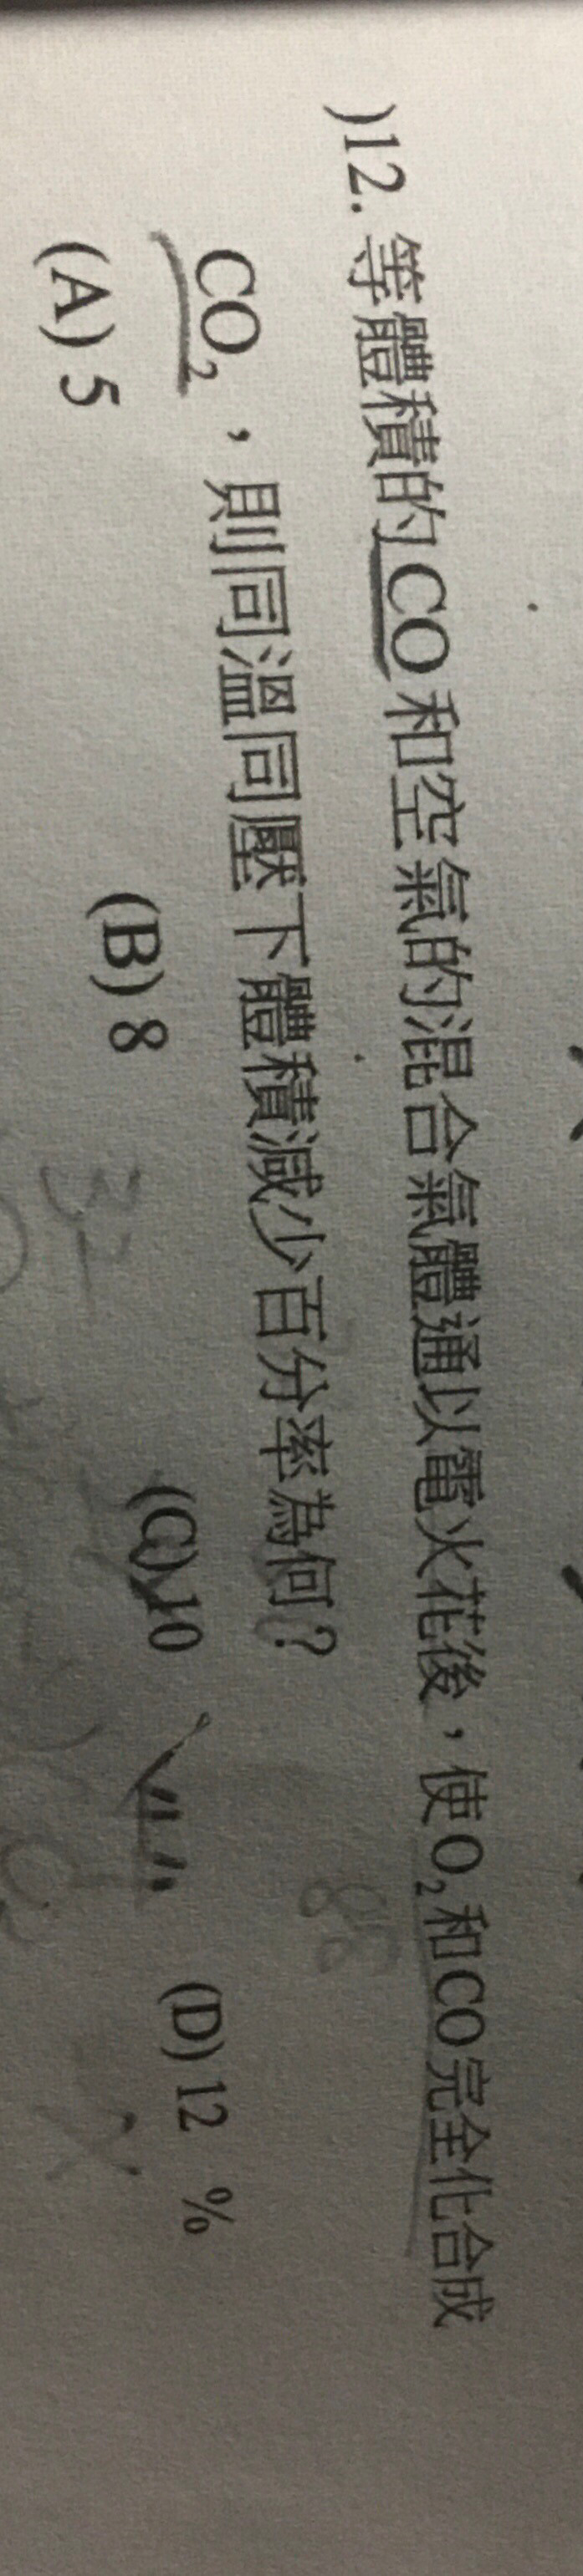 )12. 等體積的CO和空氣的混合氣體通以電火花後，使O₂和CO完全化合成
CO₂，則同溫同壓下體積減少百分率為何？
(A) 5 (B) 8 (C) 10 (D) 12 %